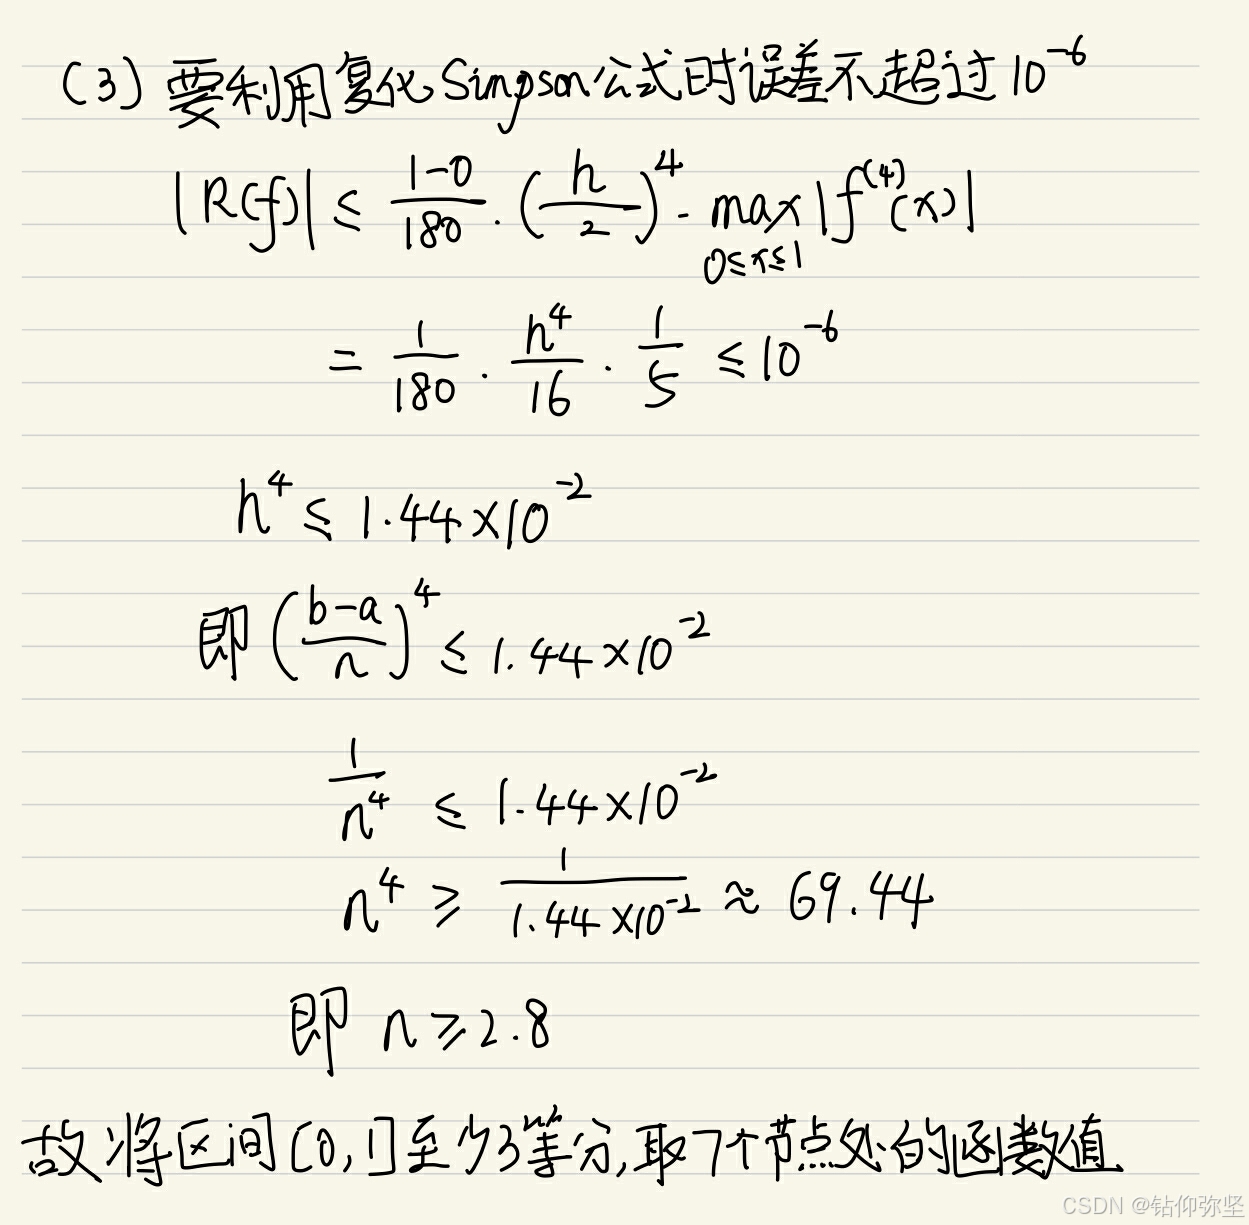 (3) 要利用复化Simpson公式时误差不超过10^{-6}
|R(f)| ≤ \frac{1-0}{180} · (\frac{h}{2})^4 · \max_{0≤x≤1} |f^{(4)}(x)|
= \frac{1}{180} · \frac{h^4}{16} · \frac{1}{5} ≤ 10^{-6}
h^4 ≤ 1.44×10^{-2}
即 (\frac{b-a}{n})^4 ≤ 1.44×10^{-2}
\frac{1}{n^4} ≤ 1.44×10^{-2}
n^4 ≥ \frac{1}{1.44×10^{-2}} ≈ 69.44
即 n≥2.8
故将区间[0,1]至少3等分,取7个节点处的函数值
CSDN @钻仰弥坚